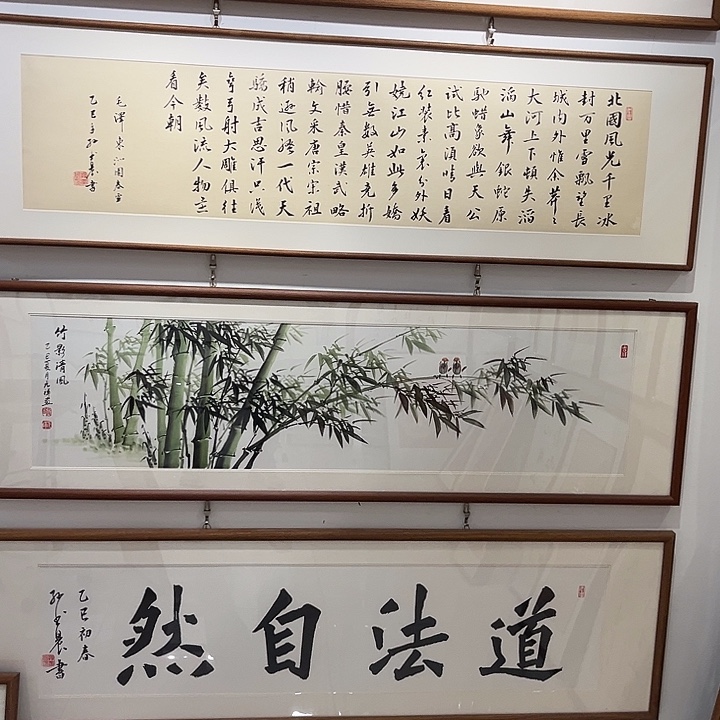 北國風光千里冰
封万里雪飘望長
城内外惟余莽々
大河上下頓失滔
滔山舞銀蛇原
馳蜡象欲與天公
試比高須晴日看
红装素裹分外妖
娆江山如此多嬌
引無数英雄竞折
腰惜秦皇漢武略
輸文采唐宗宋祖
稍逊风騷一代天
驕成吉思汗只识
弯弓射大雕俱往
矣数風流人物还
看今朝
毛澤東沁園春雪
乙巳年 書
竹影清風
乙巳夏月
道法自然
乙巳初春
書